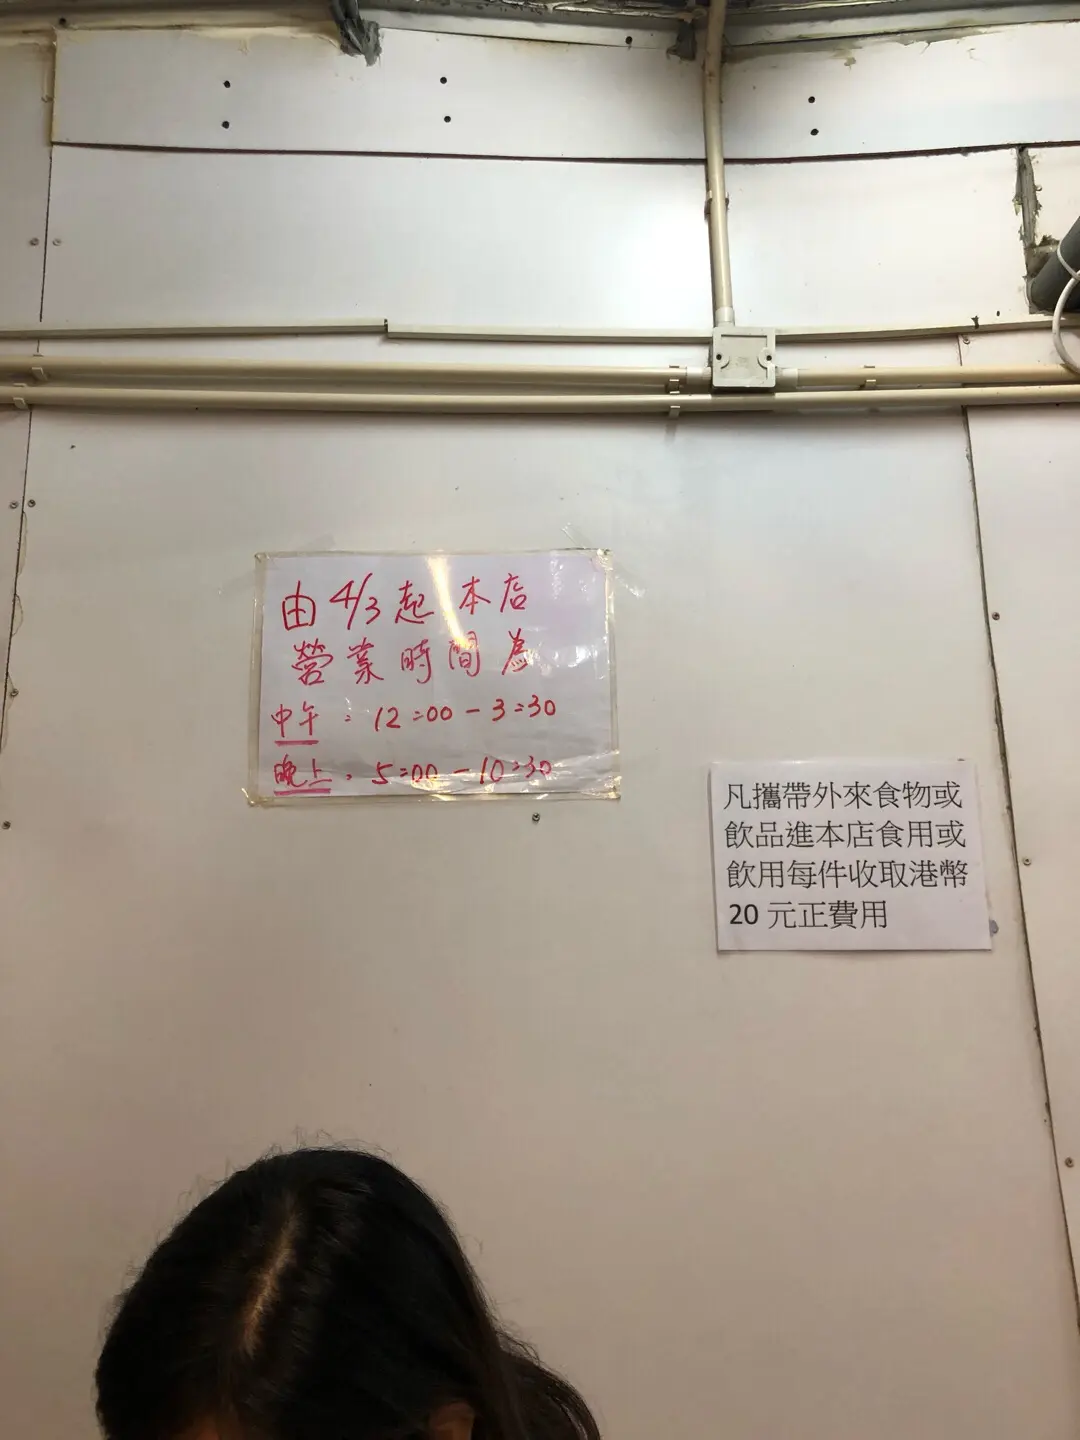 由4/3起本店
營業時間為
中午：12:00-3:30
晚上：5:00-10:30
凡攜帶外來食物或
飲品進本店食用或
飲用每件收取港幣
20 元正費用